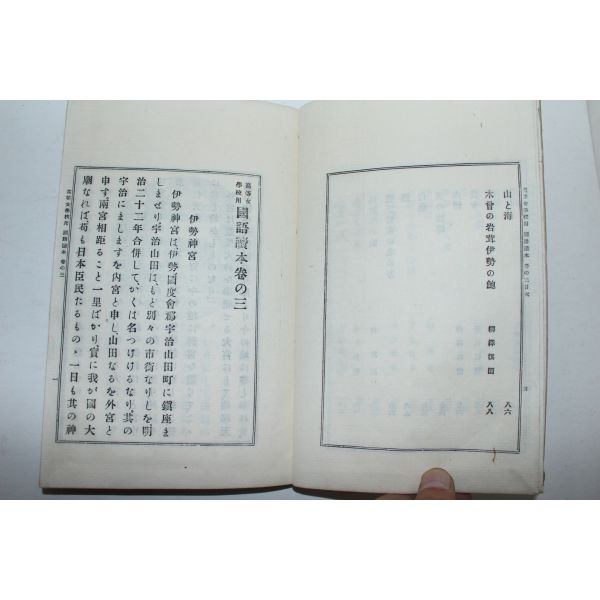 山と海 八六
木曾の岩茸伊勢の鮑 柳澤淇園 八八
高等女學校用 國語讀本卷の三
伊勢神宮
伊勢神宮は、伊勢國度會郡宇治山田町に鎮座ま
しませり。宇治山田は、もと別々の市街なりしを、明
治二十二年合併して、かくは名つけけるなり。其の
宇治にましますを內宮と申し、山田なるを外宮と
申す。兩宮相距ること一里ばかり、實に我が國の大
廟なれば、苟も日本臣民たるもの、一日も其の神
高等女學校用 國語讀本 卷の三